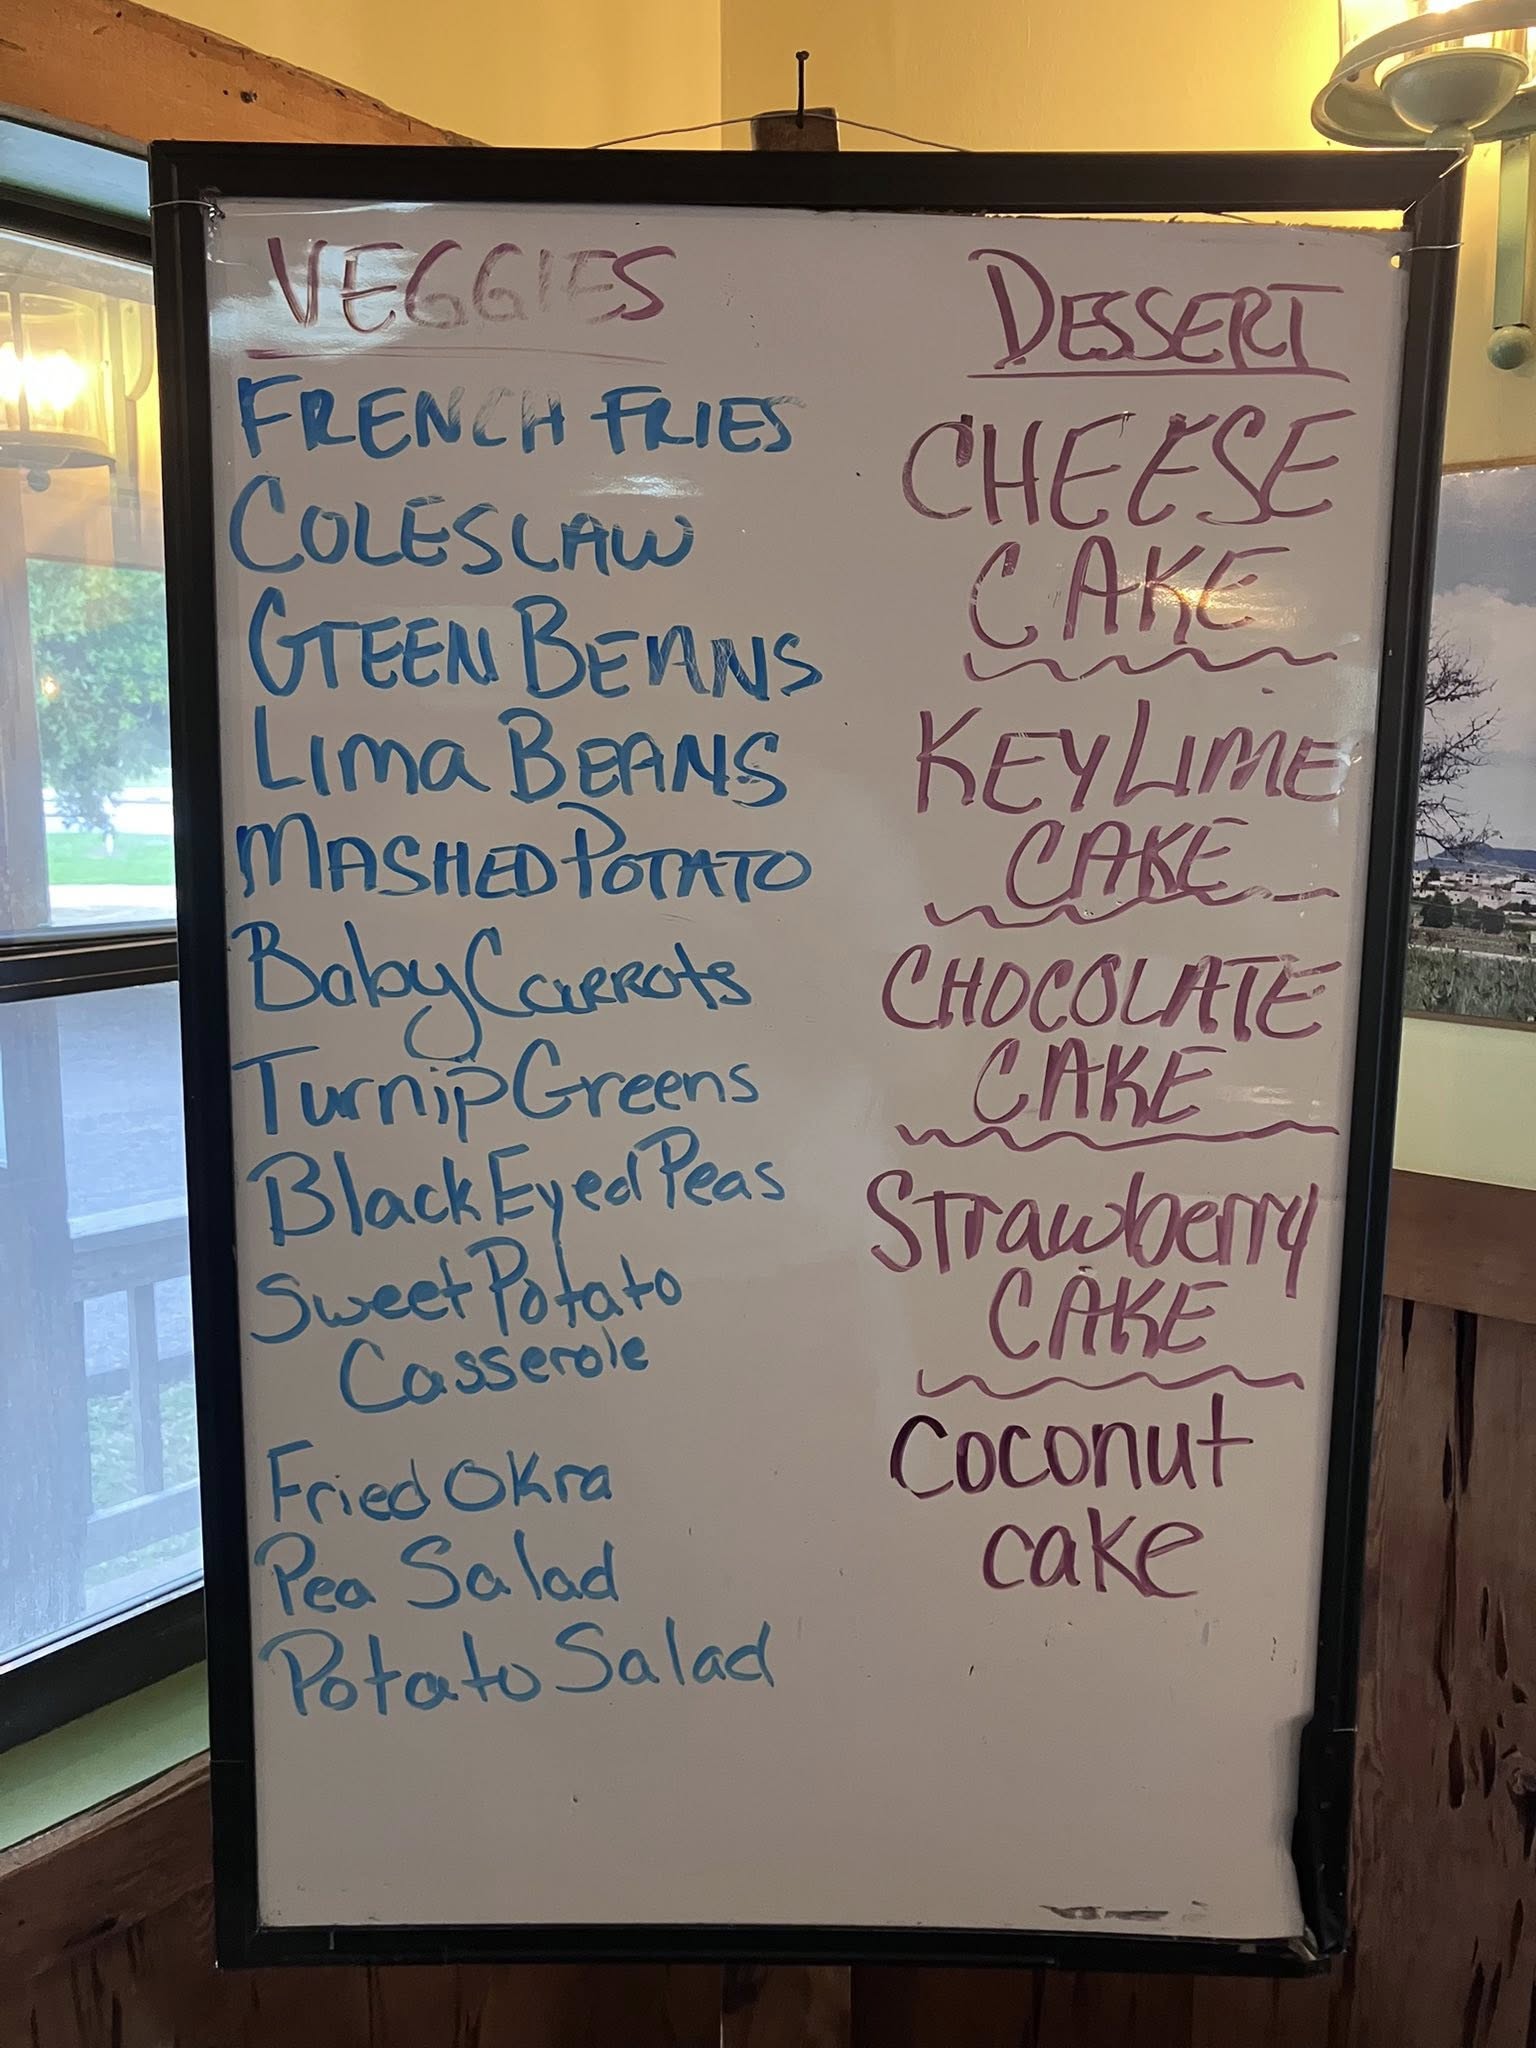 VEGGIES
FRENCH FRIES
COLESLAW
GREEN BEANS
LIMA BEANS
MASHED POTATO
Baby Carrots
Turnip Greens
Black Eyed Peas
Sweet Potato
Casserole
Fried Okra
Pea Salad
Potato Salad
DESSERT
CHEESE
CAKE
KEY LIME
CAKE
CHOCOLATE
CAKE
Strawberry
CAKE
coconut
cake